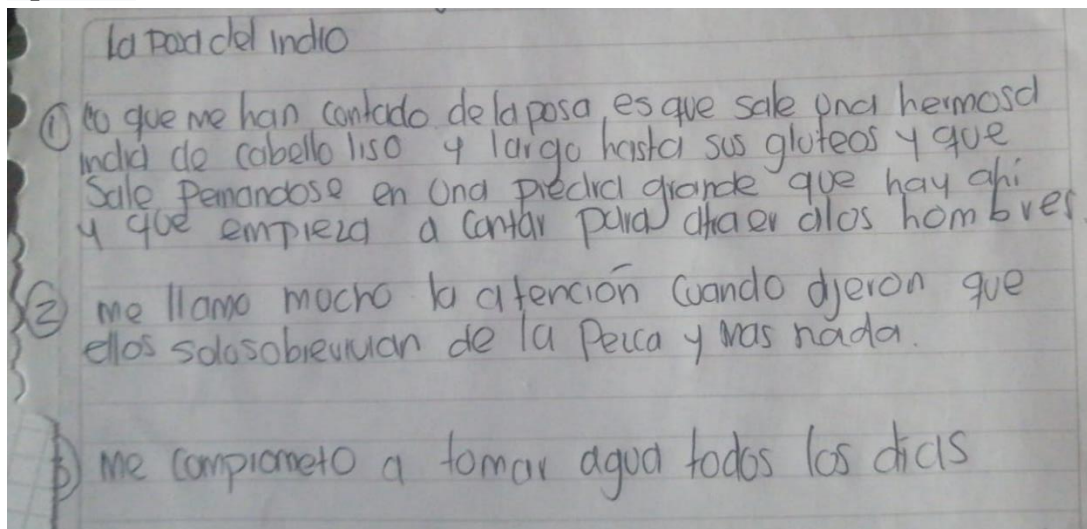 la poza del indio
① lo que me han contado de la posa, es que sale una hermosa
india de cabello liso y largo hasta sus gluteos y que
Sale Peinandose en Una piedra grande que hay ahi
y que empieza a cantar para atraer alos hombres
② me llamo mucho la atención Cuando dijeron que
ellos solo sobrevivian de la Pesca y mas nada.
me comprometo a tomar agua todos los dias